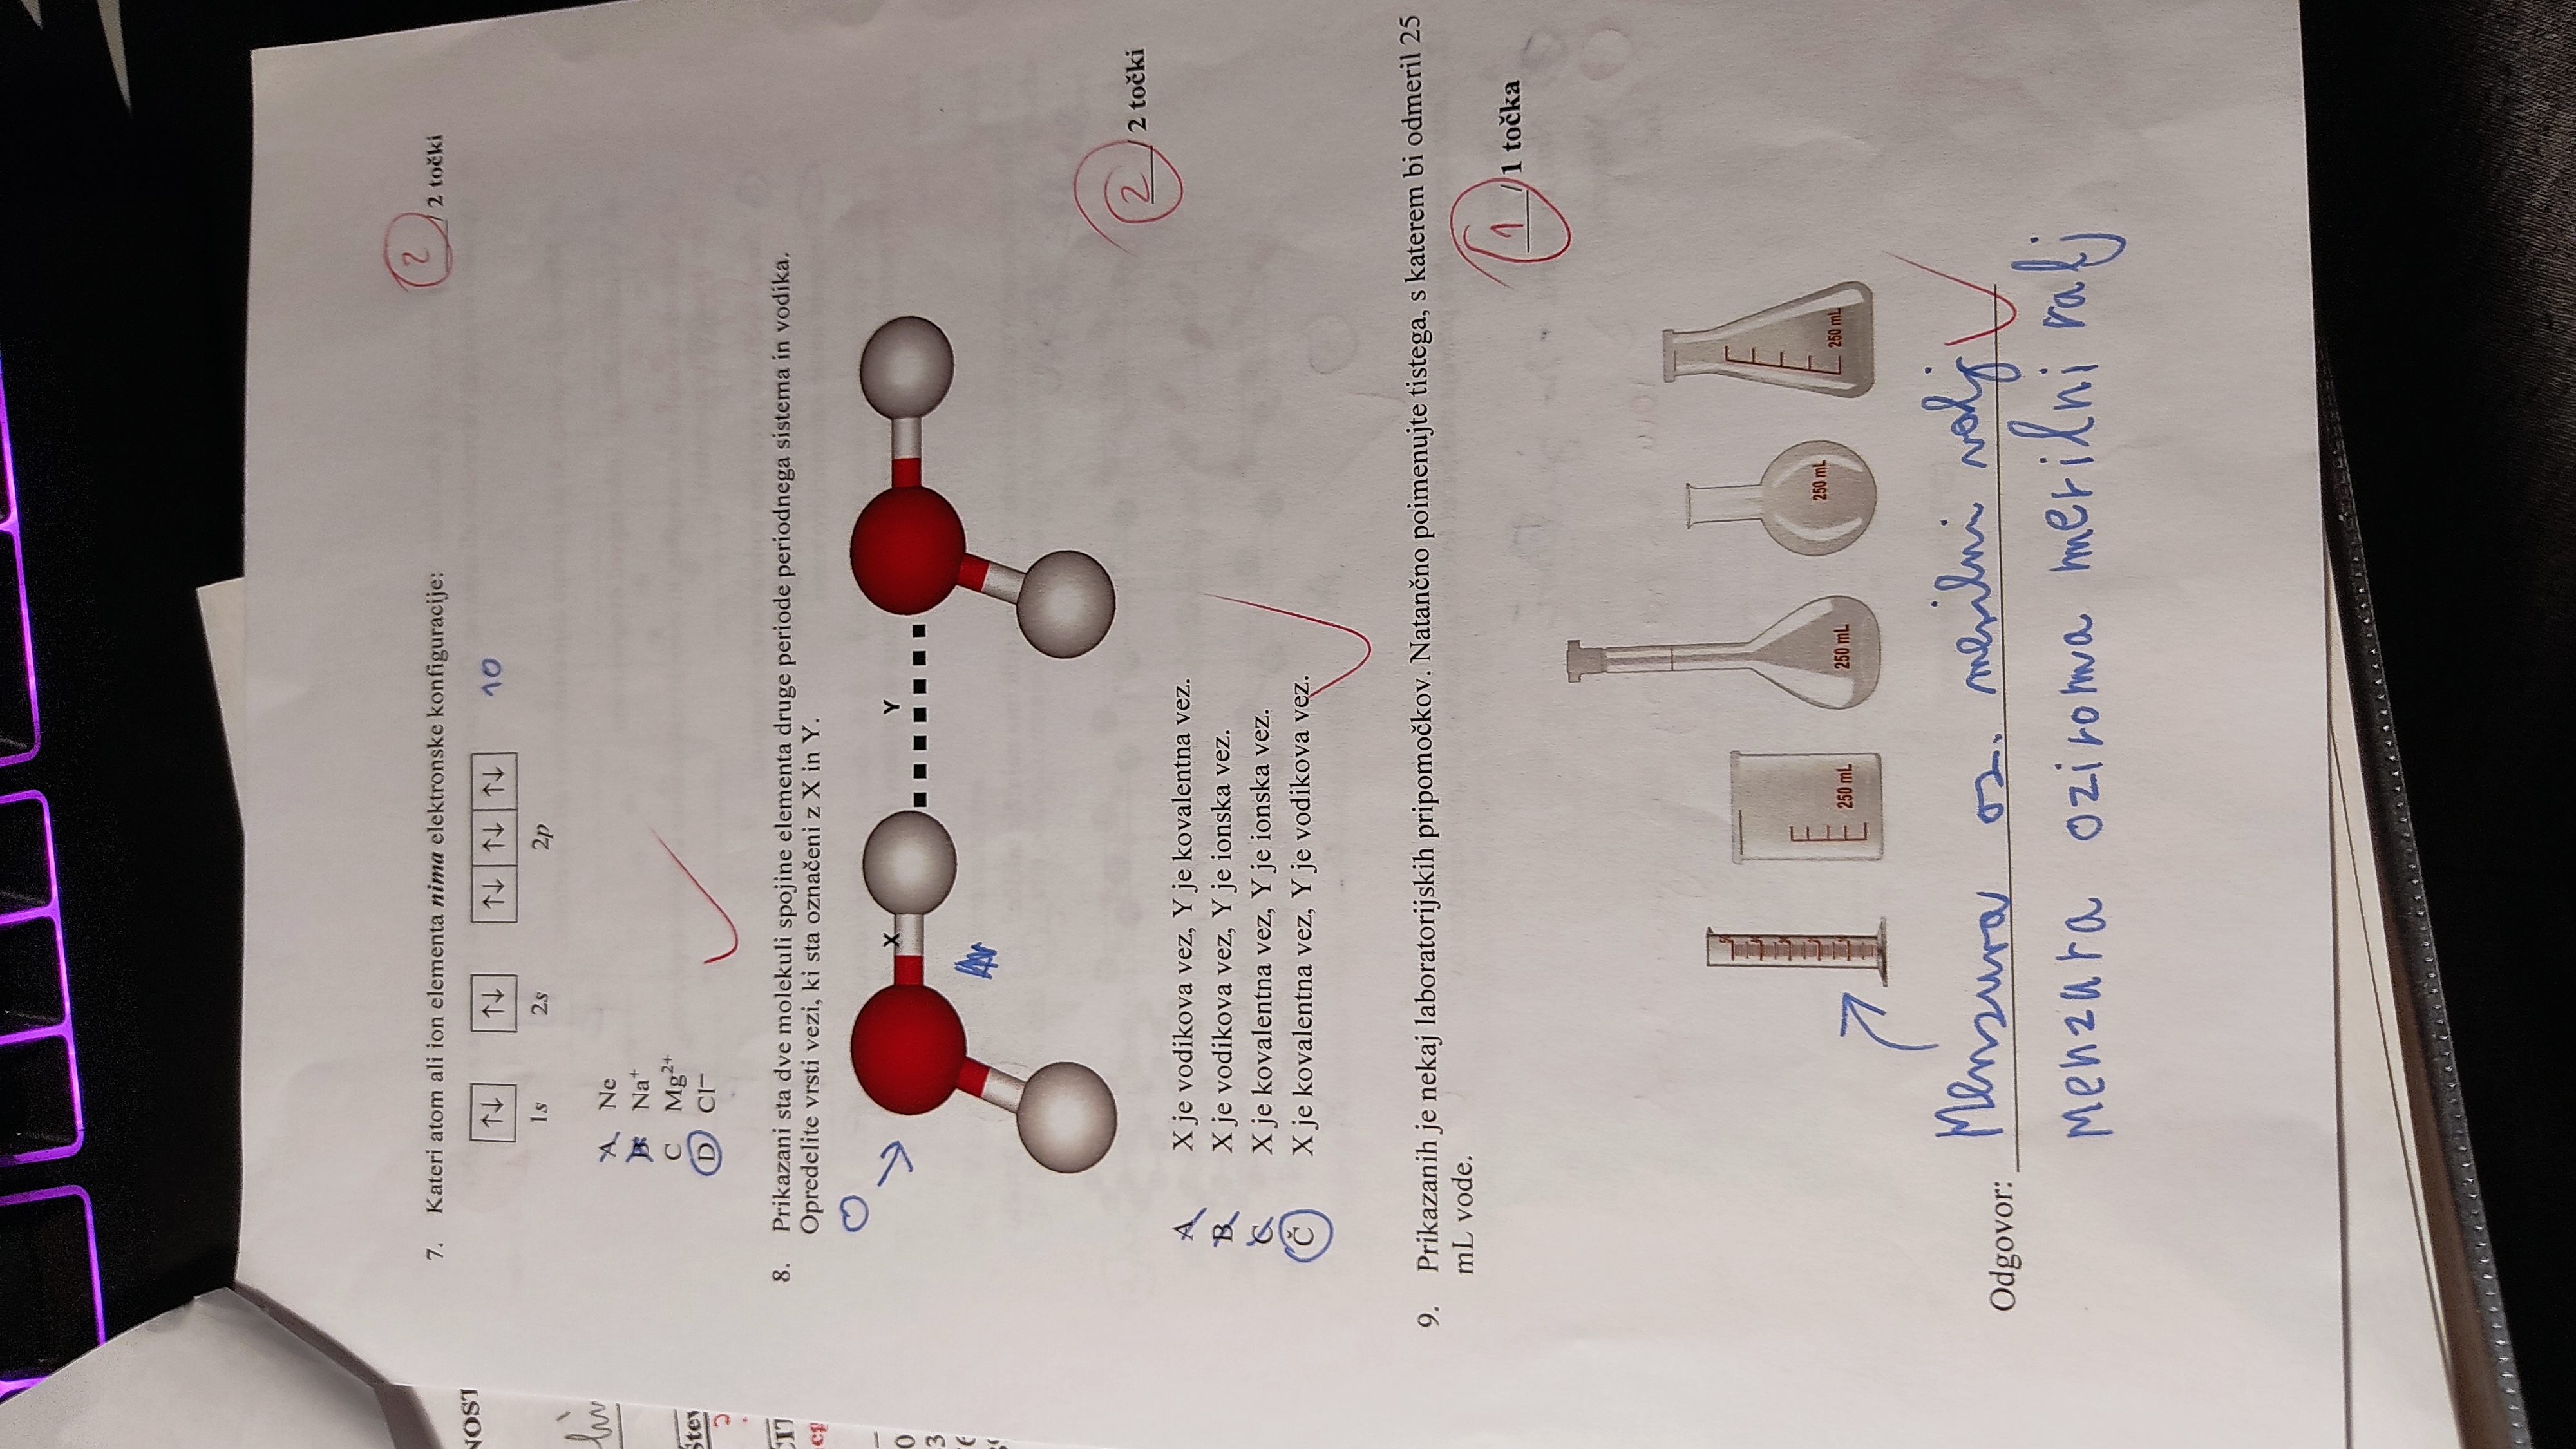 NOST
7. Kateri atom ali ion elementa nima elektronske konfiguracije:
2 / 2 točki
↑↓ ↑↓ ↑↓ ↑↓ ↑↓ 10
1s 2s 2p
A Ne
B Na⁺
C Mg²⁺
D Cl⁻
8. Prikazani sta dve molekuli spojine elementa druge periode periodnega sistema in vodika.
Opredelite vrsti vezi, ki sta označeni z X in Y.
O
X Y
2 / 2 točki
A X je vodikova vez, Y je kovalentna vez.
B X je vodikova vez, Y je ionska vez.
C X je kovalentna vez, Y je ionska vez.
Č X je kovalentna vez, Y je vodikova vez.
9. Prikazanih je nekaj laboratorijskih pripomočkov. Natančno poimenujte tistega, s katerem bi odmeril 25
mL vode.
1 / 1 točka
250 mL 250 mL 250 mL 250 mL
Odgovor: Menzura oz. merilni valj
menzura oziroma merilni valj